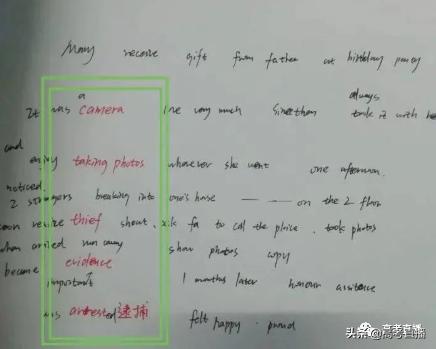 Many receive gift from father at birthday party
a always
It was camera love very much since then took it with her
and enjoy taking photos wherever she went one afternoon.
noticed.
2 strangers breaking into one's house — — on the 2 floor
soon realize thief shout, ask fa to call the police. took photos
when arrived run away show photos copy
became evidence
important 1 months later honour
was arrested 逮捕 felt happy. proud
高考直播
头条 @高考直播